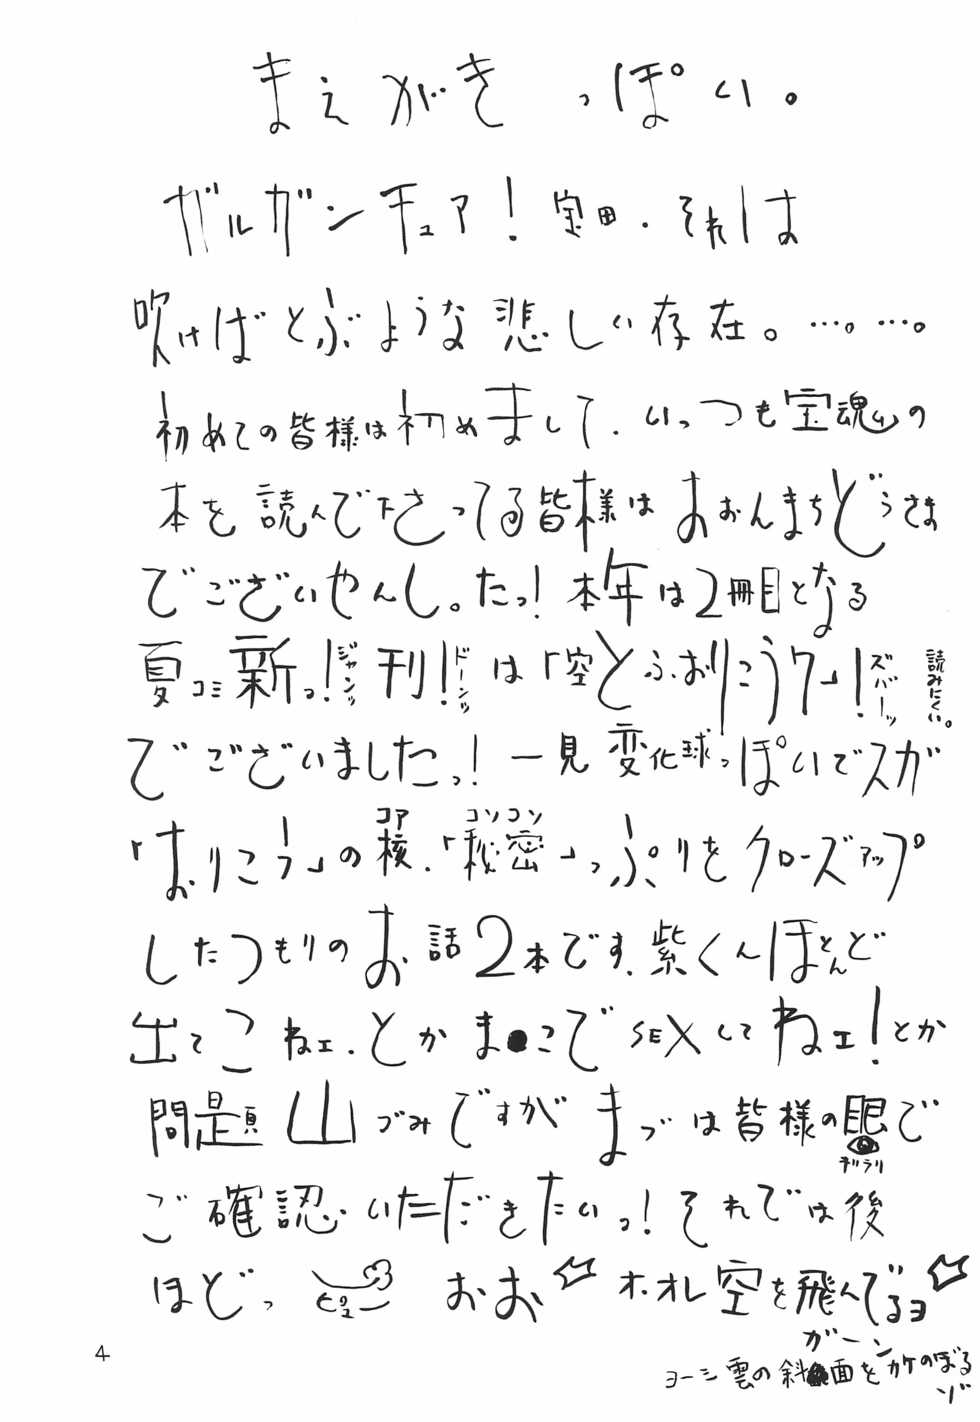 まえがきっぽい。
ガルガンチュア！宝田．それは
吹けばとぶような悲しい存在。…。…。
初めての皆様は初めまして．いっつも宝魂の
本を読んで下さってる皆様はおおんまちどうさま
でございやんし。たっ！本年は2冊目となる
夏コミ新っ！ジャンッ刊！ドーンッは「空とぶおりこうワ」！ズバーッ読みにくい。
でございましたっ！一見変化球っぽいでスガ
コア コソコソ
「おりこう」の核．「秘密」っぷりをクローズアップ
したつもりのお話2本です．紫くんほとんど
出てこねェ．とかま●こでSEXしてねェ！とか
問題山づみですがまづは皆様の眼で
ギリラリ
ご確認いただきたいっ！それでは後
ほどっ ピュー おお ホ．オレ空を飛んでるヨ
ガーン
ヨーシ雲の斜面をカケのぼる
ゾ
4